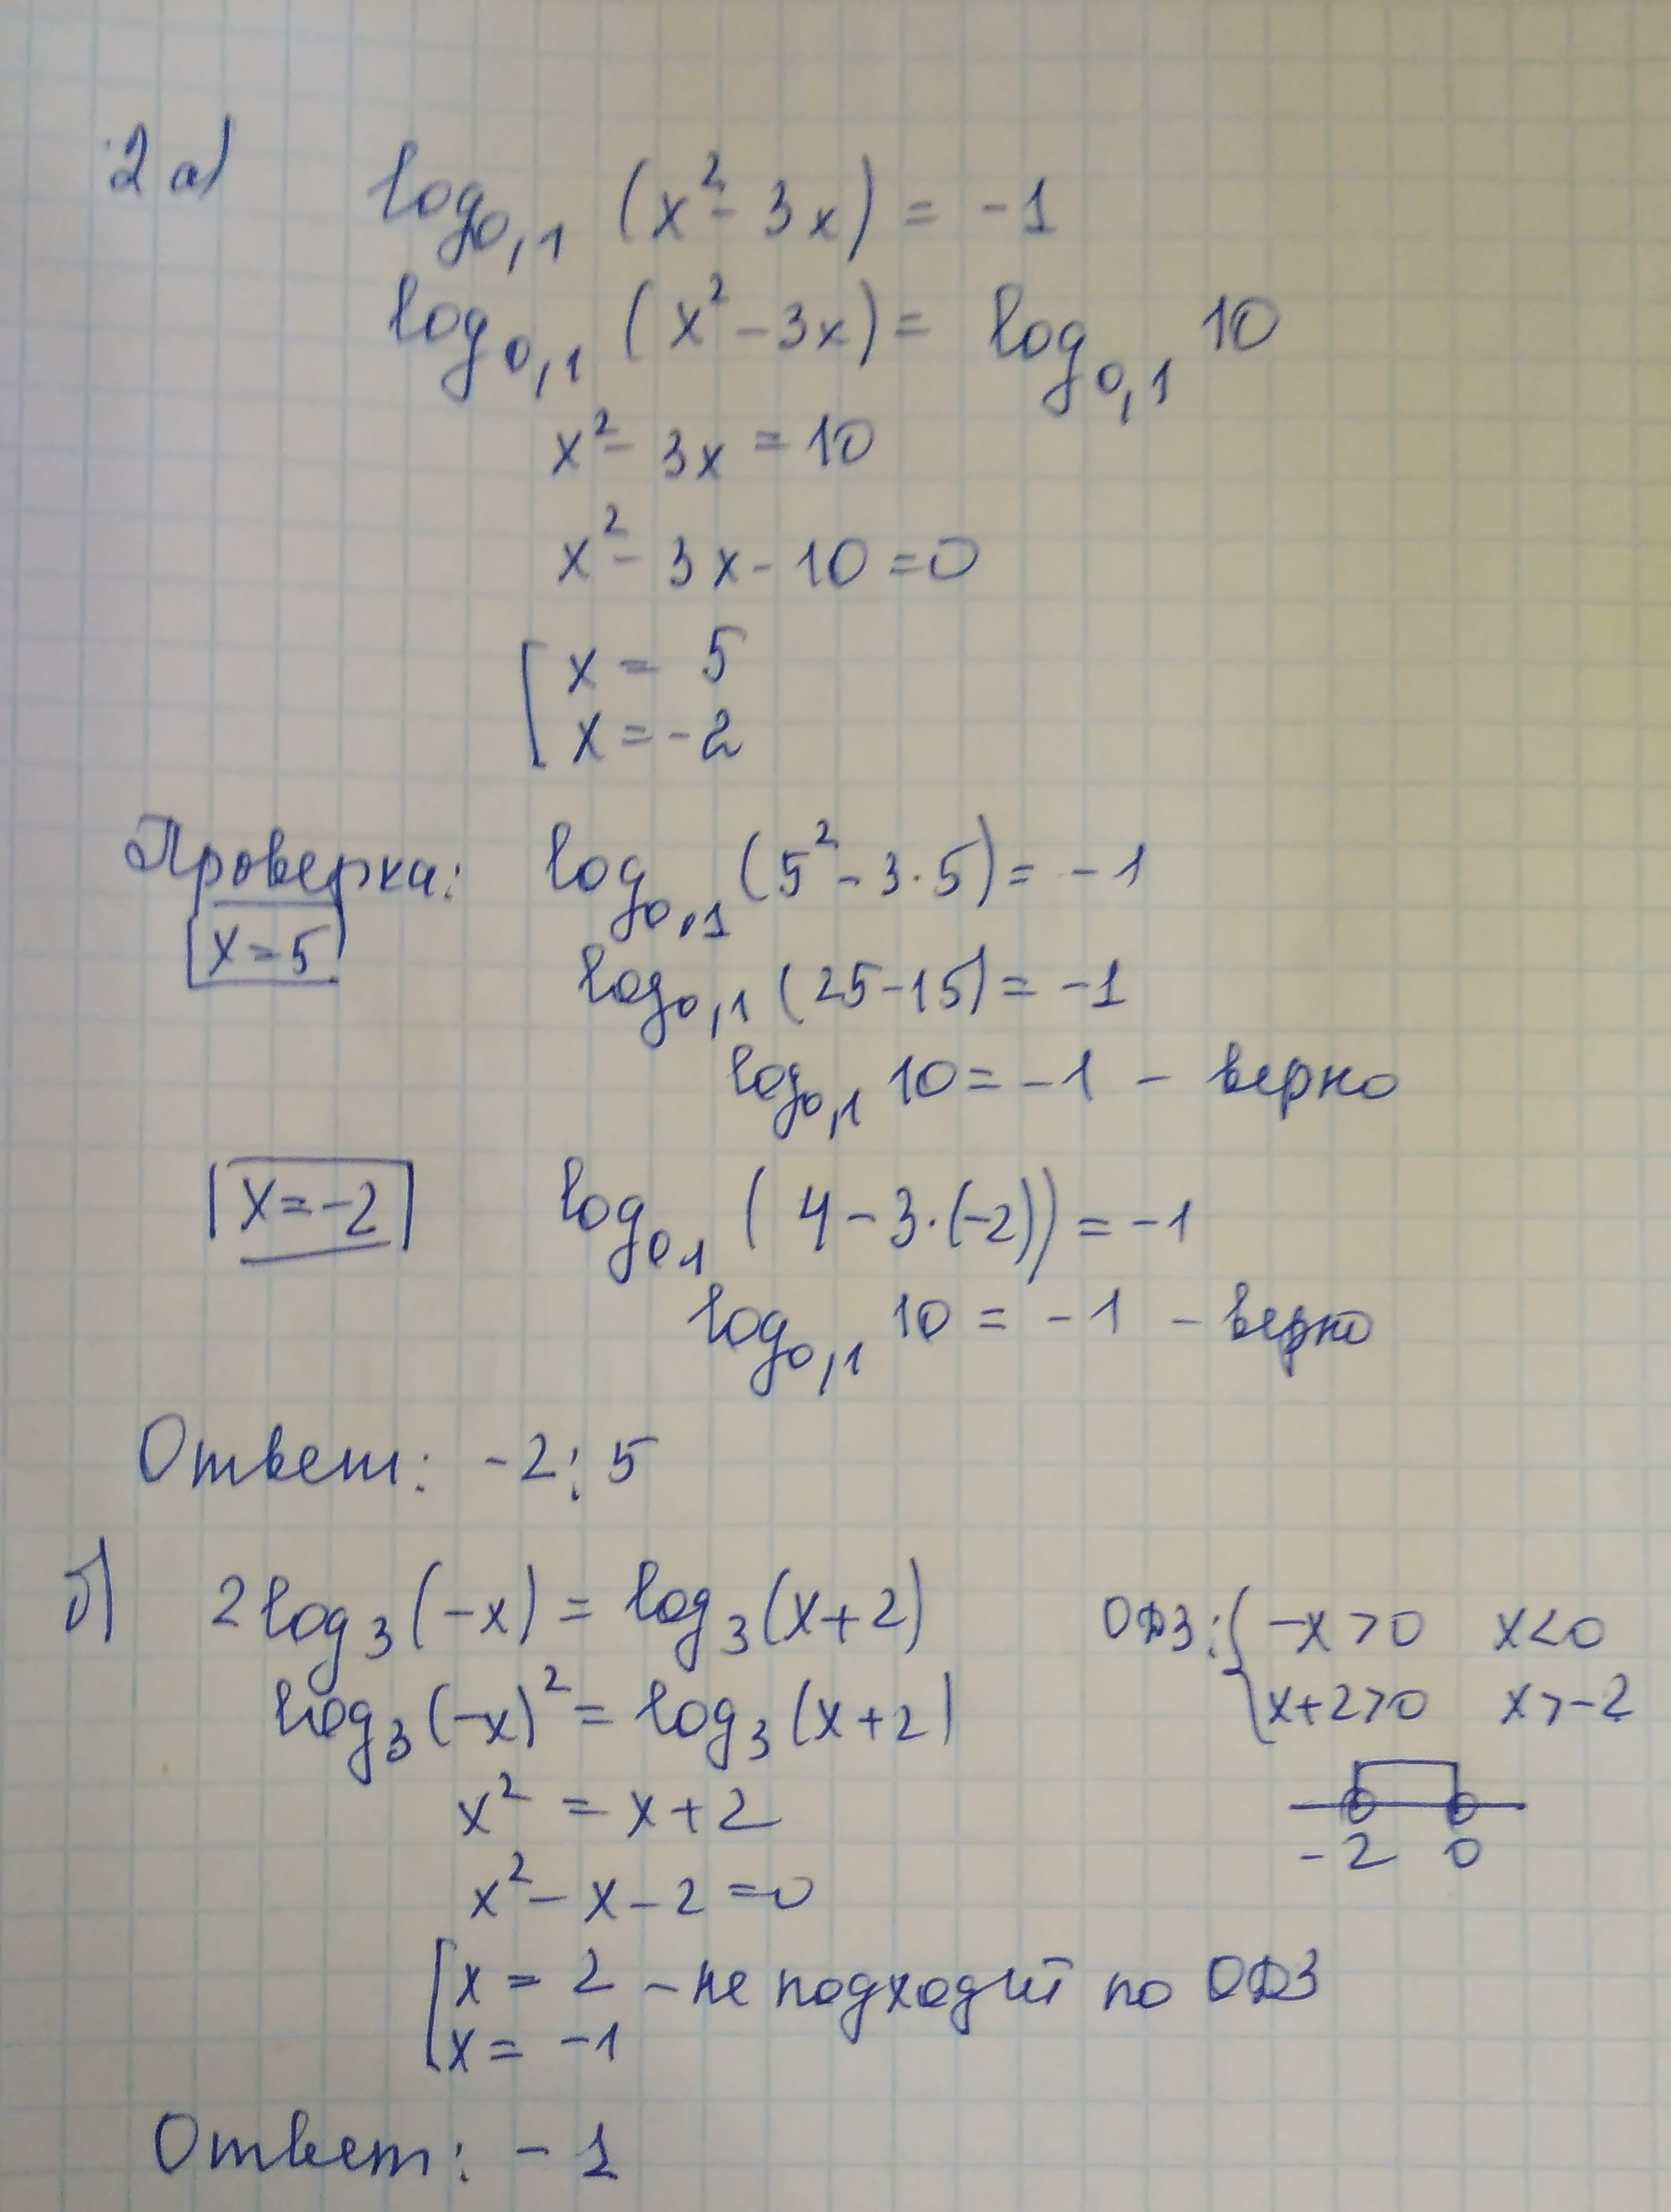 2 а) log₀,₁ (x² - 3x) = -1
log₀,₁ (x² - 3x) = log₀,₁ 10
x² - 3x = 10
x² - 3x - 10 = 0
[ x = 5
x = -2
Проверка: log₀,₁ (5² - 3·5) = -1
x = 5 log₀,₁ (25-15) = -1
log₀,₁ 10 = -1 - верно
x = -2 log₀,₁ (4 - 3·(-2)) = -1
log₀,₁ 10 = -1 - верно
Ответ: -2; 5
б) 2 log₃ (-x) = log₃ (x+2) ОДЗ: { -x > 0 x < 0
log₃ (-x)² = log₃ (x+2) x+2 > 0 x > -2
x² = x + 2
-2 0
x² - x - 2 = 0
[ x = 2 - не подходит по ОДЗ
x = -1
Ответ: -1